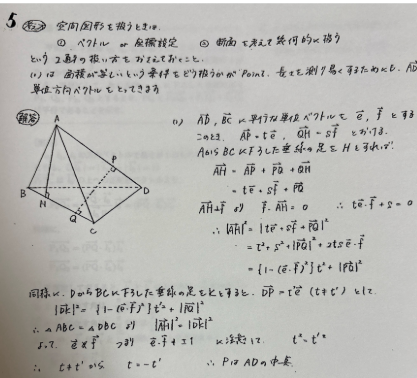 5 考え方 空間図形を扱うときは、
① ベクトル or 座標設定 ② 断面を考えて幾何的に扱う
という2通りの扱い方をおさえておくこと。
(1)は 面積が等しいという条件をどう扱うかがPoint。長さを測り易くするためにも、AD
単位方向ベクトルをとってきます
解答
A
B
H
Q
C
P
D
(1) AD, BCに平行な単位ベクトルをe, fとする
このとき、AP = te, QH = sf とかける。
AからBCに下ろした垂線の足をHとすれば、
AH = AP + PQ + QH
= te + sf + PQ
AH⊥f より f・AH = 0 ∴ te・f + s = 0
∴ |AH|² = |te + sf + PQ|²
= t² + s² + |PQ|² + 2ts e・f
= {1 - (e・f)²}t² + |PQ|²
同様に、DからBCに下ろした垂線の足をKとすると、DP = t'e (t≠t') として、
|DK|² = {1 - (e・f)²}t'² + |PQ|²
∴ △ABC = △DBC より |AH|² = |DK|²
よって、e∦f つまり e・f ≠ ±1 に注意して、 t² = t'²
∴ t≠t' から t = -t' ∴ PはADの中点